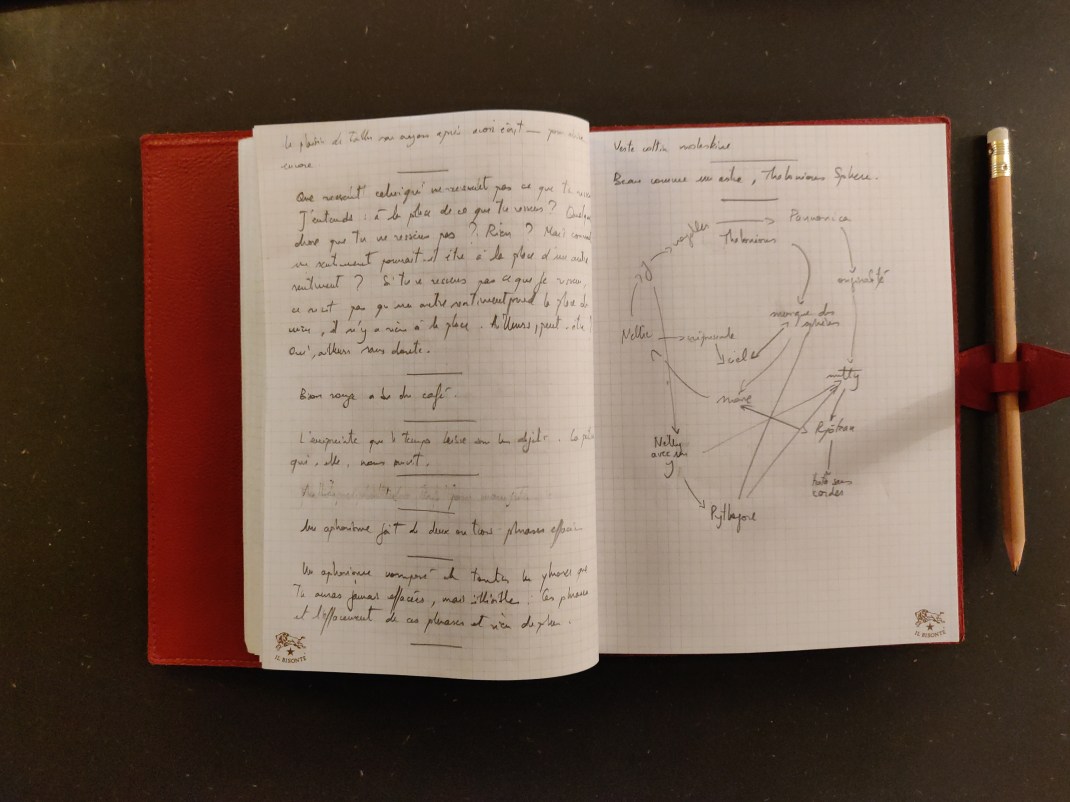 le plaisir de tailler un crayon après avoir écrit — pour écrire
encore
Que ressent celui qui ne ressent pas ce que tu
J'entends : à la place de ce que tu ressens ? Quelque
chose que tu ne ressens pas ? Rien ? Mais comment
un sentiment pourrait-il être à la place d'un autre
sentiment ? Si tu ne ressens pas ce que je ressens,
ce n'est pas qu'un autre sentiment prend la place du
mien, il n'y a rien à la place. Ailleurs, peut-être ?
Oui, ailleurs sans doute.
a bu du café.
L'empreinte que le temps laisse sur les objets.
qui, elle, nous
Un aphorisme fait de deux ou trois phrases effacées
Un aphorisme composé de toutes les phrases que
tu auras jamais effacées, mais illisible. Ces phrases
et l'effacement de ces phrases et rien de plus.
IL BISONTE
Veste coltin moleskine
Beau comme un astre, Thelonious Sphere.
Pannonica
Thelonious
voyelles
y
originalité
musique des
sphères
Nellie
ciel
nutty
mère
Nelly
avec un
y
sans
cordes
Pythagore
IL BISONTE